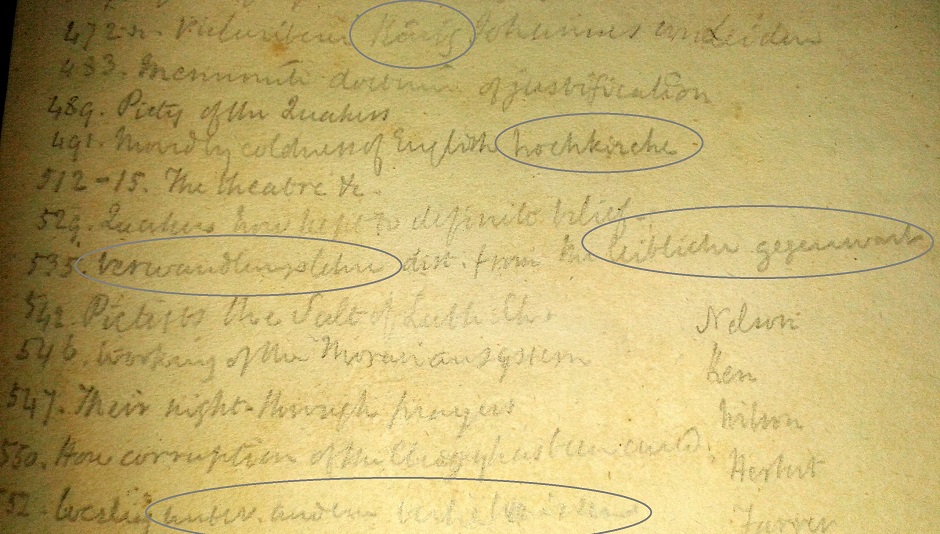 472 n. König Johannes von Leiden
483. Mennonite doctrine of justification
489. Piety of the Quakers
491. coldness of English hochkirche
512-15. The theatre &c.
529. Quakers how kept to definite belief.
535. verwandlungslehre dist. from the leibliche gegenwart
542. Pietists the Salt of Luth. Ch.
Nelson
546. Working of the Moravian system
Ken
547. Their night-through prayers
Wilson
550. How corruption of the Clergy has been cured.
Herbert
552. Wesley unter andern
Farrer